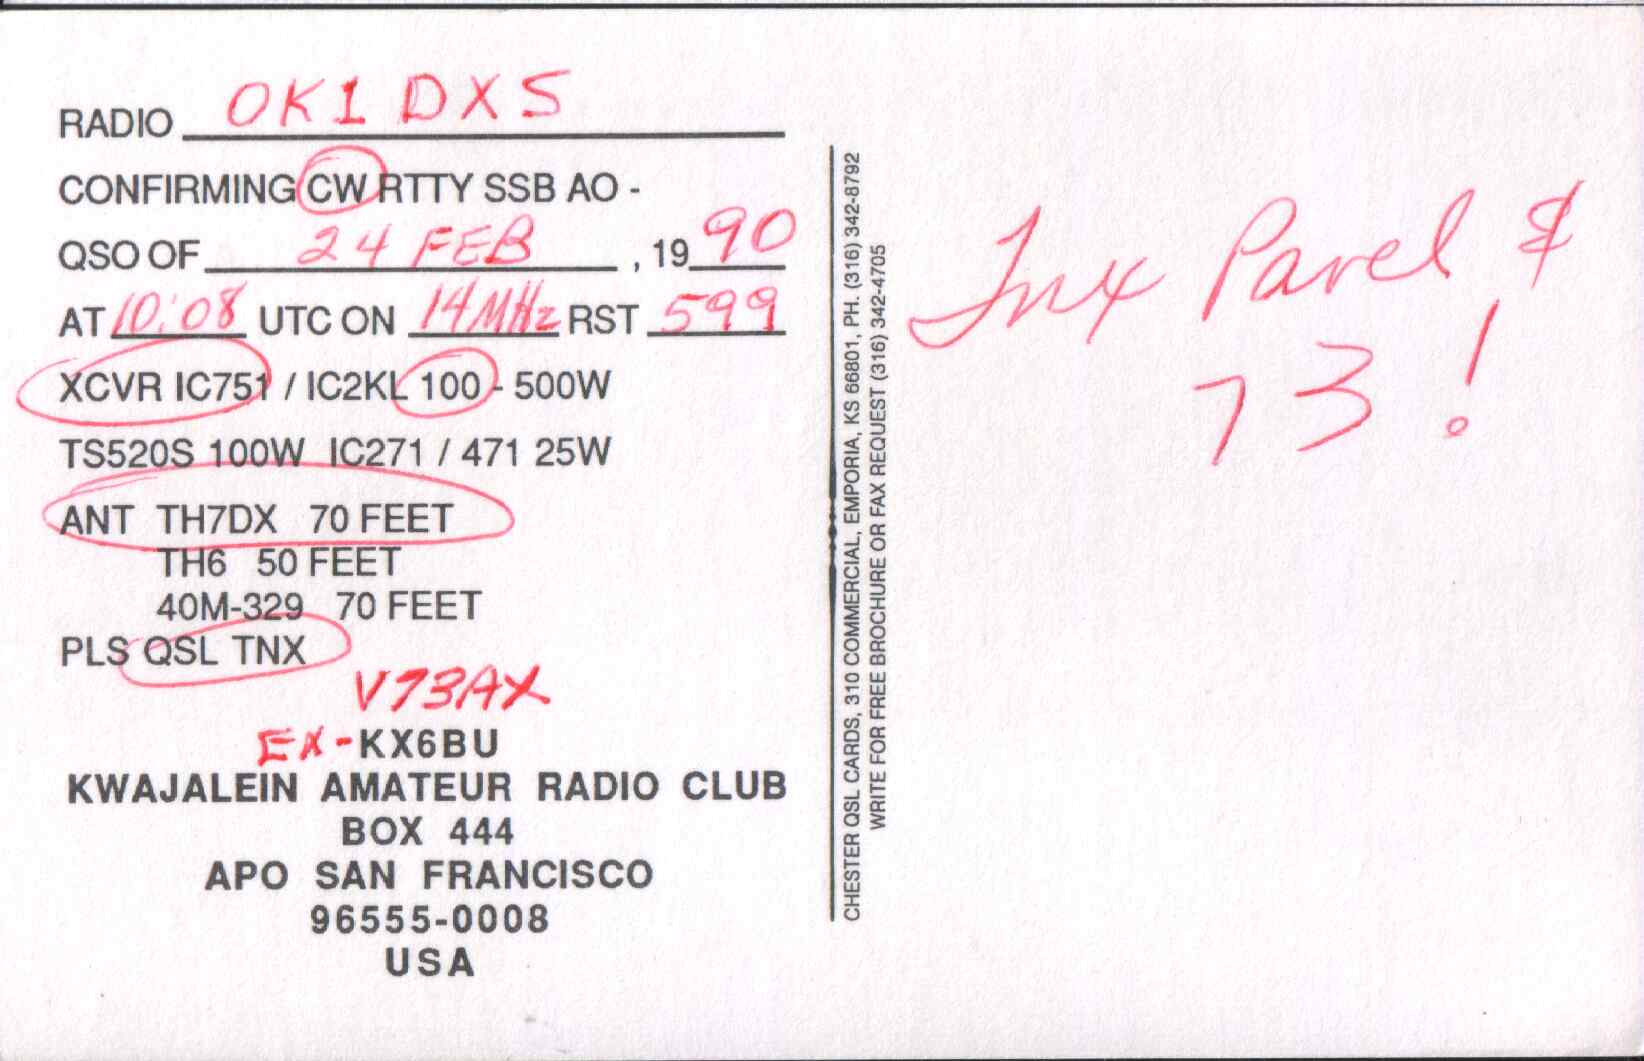 RADIO OK1DXS
CONFIRMING CW RTTY SSB AO -
QSO OF 24 FEB , 19 90
AT 10:08 UTC ON 14MHz RST 599
XCVR IC751 / IC2KL 100 - 500W
TS520S 100W IC271 / 471 25W
ANT TH7DX 70 FEET
TH6 50 FEET
40M-329 70 FEET
PLS QSL TNX
V73AX
EX-KX6BU
KWAJALEIN AMATEUR RADIO CLUB
BOX 444
APO SAN FRANCISCO
96555-0008
USA
CHESTER QSL CARDS, 310 COMMERCIAL, EMPORIA, KS 66801, PH. (316) 342-8792
WRITE FOR FREE BROCHURE OR FAX REQUEST (316) 342-4705
Tnx Pavel &
73!